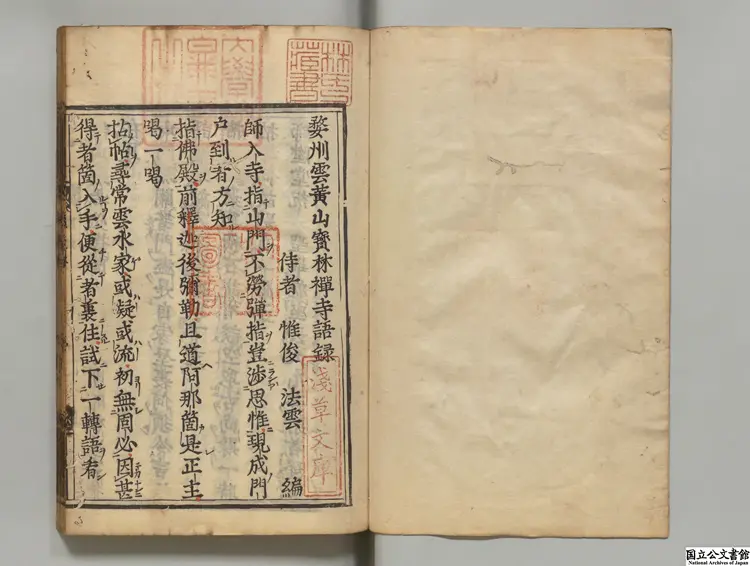 婺州雲黃山寶林禪寺語録
侍者 惟俊 法雲 編
師入寺指山門不勞彈指豈渉思惟現成門
户到者方知
指佛殿前釋迦後彌勒且道阿那箇是正主
喝一喝
拈帖尋常雲水家或疑或流初無固必因甚
得者箇入手便從者裏住試下一轉語看
林氏藏書
淺草文庫
国立公文書館
National Archives of Japan